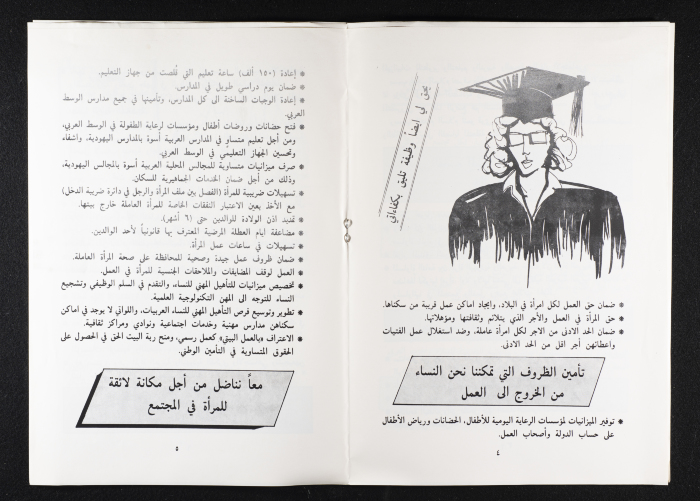 يحق لي ايضاً وظيفة تليق بكفاءاتي
* ضمان حق العمل لكل امرأة في البلاد، وايجاد اماكن عمل قريبة من سكناها.
* حق المرأة في العمل والأجر الذي يتلائم وثقافتها ومؤهلاتها.
* ضمان الحد الادنى من الاجر لكل امرأة عاملة، وضد استغلال عمل الفتيات
واعطائهن أجر اقل من الحد الادنى.
تأمين الظروف التي تمكننا نحن النساء
من الخروج الى العمل
* توفير الميزانيات لمؤسسات الرعاية اليومية للأطفال، الحضانات ورياض الأطفال
على حساب الدولة وأصحاب العمل.
٤
* إعادة (١٥٠ ألف) ساعة تعليم التي قُلصت من جهاز التعليم.
* ضمان يوم دراسي طويل في المدارس.
* إعادة الوجبات الساخنة الى كل المدارس، وتأمينها في جميع مدارس الوسط
العربي.
* فتح حضانات وروضات أطفال ومؤسسات لرعاية الطفولة في الوسط العربي،
ومن أجل تعليم متساوٍ في المدارس العربية أسوة بالمدارس اليهودية، وانشاء
وتحسين الجهاز التعليمي في الوسط العربي.
* صرف ميزانيات متساوية للمجالس المحلية العربية أسوة بالمجالس اليهودية،
وذلك من أجل ضمان الخدمات الجماهيرية للسكان.
* تسهيلات ضريبية للمرأة (الفصل بين ملف المرأة والرجل في دائرة ضريبة الدخل)
مع الأخذ بعين الاعتبار النفقات الخاصة للمرأة العاملة خارج بيتها.
* تمديد اذن الولادة للوالدين حتى (٦ أشهر).
* مضاعفة ايام العطلة المرضية المعترف بها قانونياً لأحد الوالدين.
* تسهيلات في ساعات عمل المرأة.
* ضمان ظروف عمل جيدة وصحية للمحافظة على صحة المرأة العاملة.
* العمل لوقف المضايقات والملاحقات الجنسية للمرأة في العمل.
* تخصيص ميزانيات للتأهيل المهني للنساء، والتقدم في السلم الوظيفي وتشجيع
النساء للتوجه الى المهن التكنولوجية العلمية.
* تطوير وتوسيع فرص التأهيل المهني للنساء العربيات، واللواتي لا يوجد في اماكن
سكناهن مدارس مهنية وخدمات اجتماعية ونوادي ومراكز ثقافية.
* الاعتراف «بالعمل البيتي» كعمل رسمي، ومنح ربة البيت الحق في الحصول على
الحقوق المتساوية في التأمين الوطني.
معاً نناضل من أجل مكانة لائقة
للمرأة في المجتمع
٥